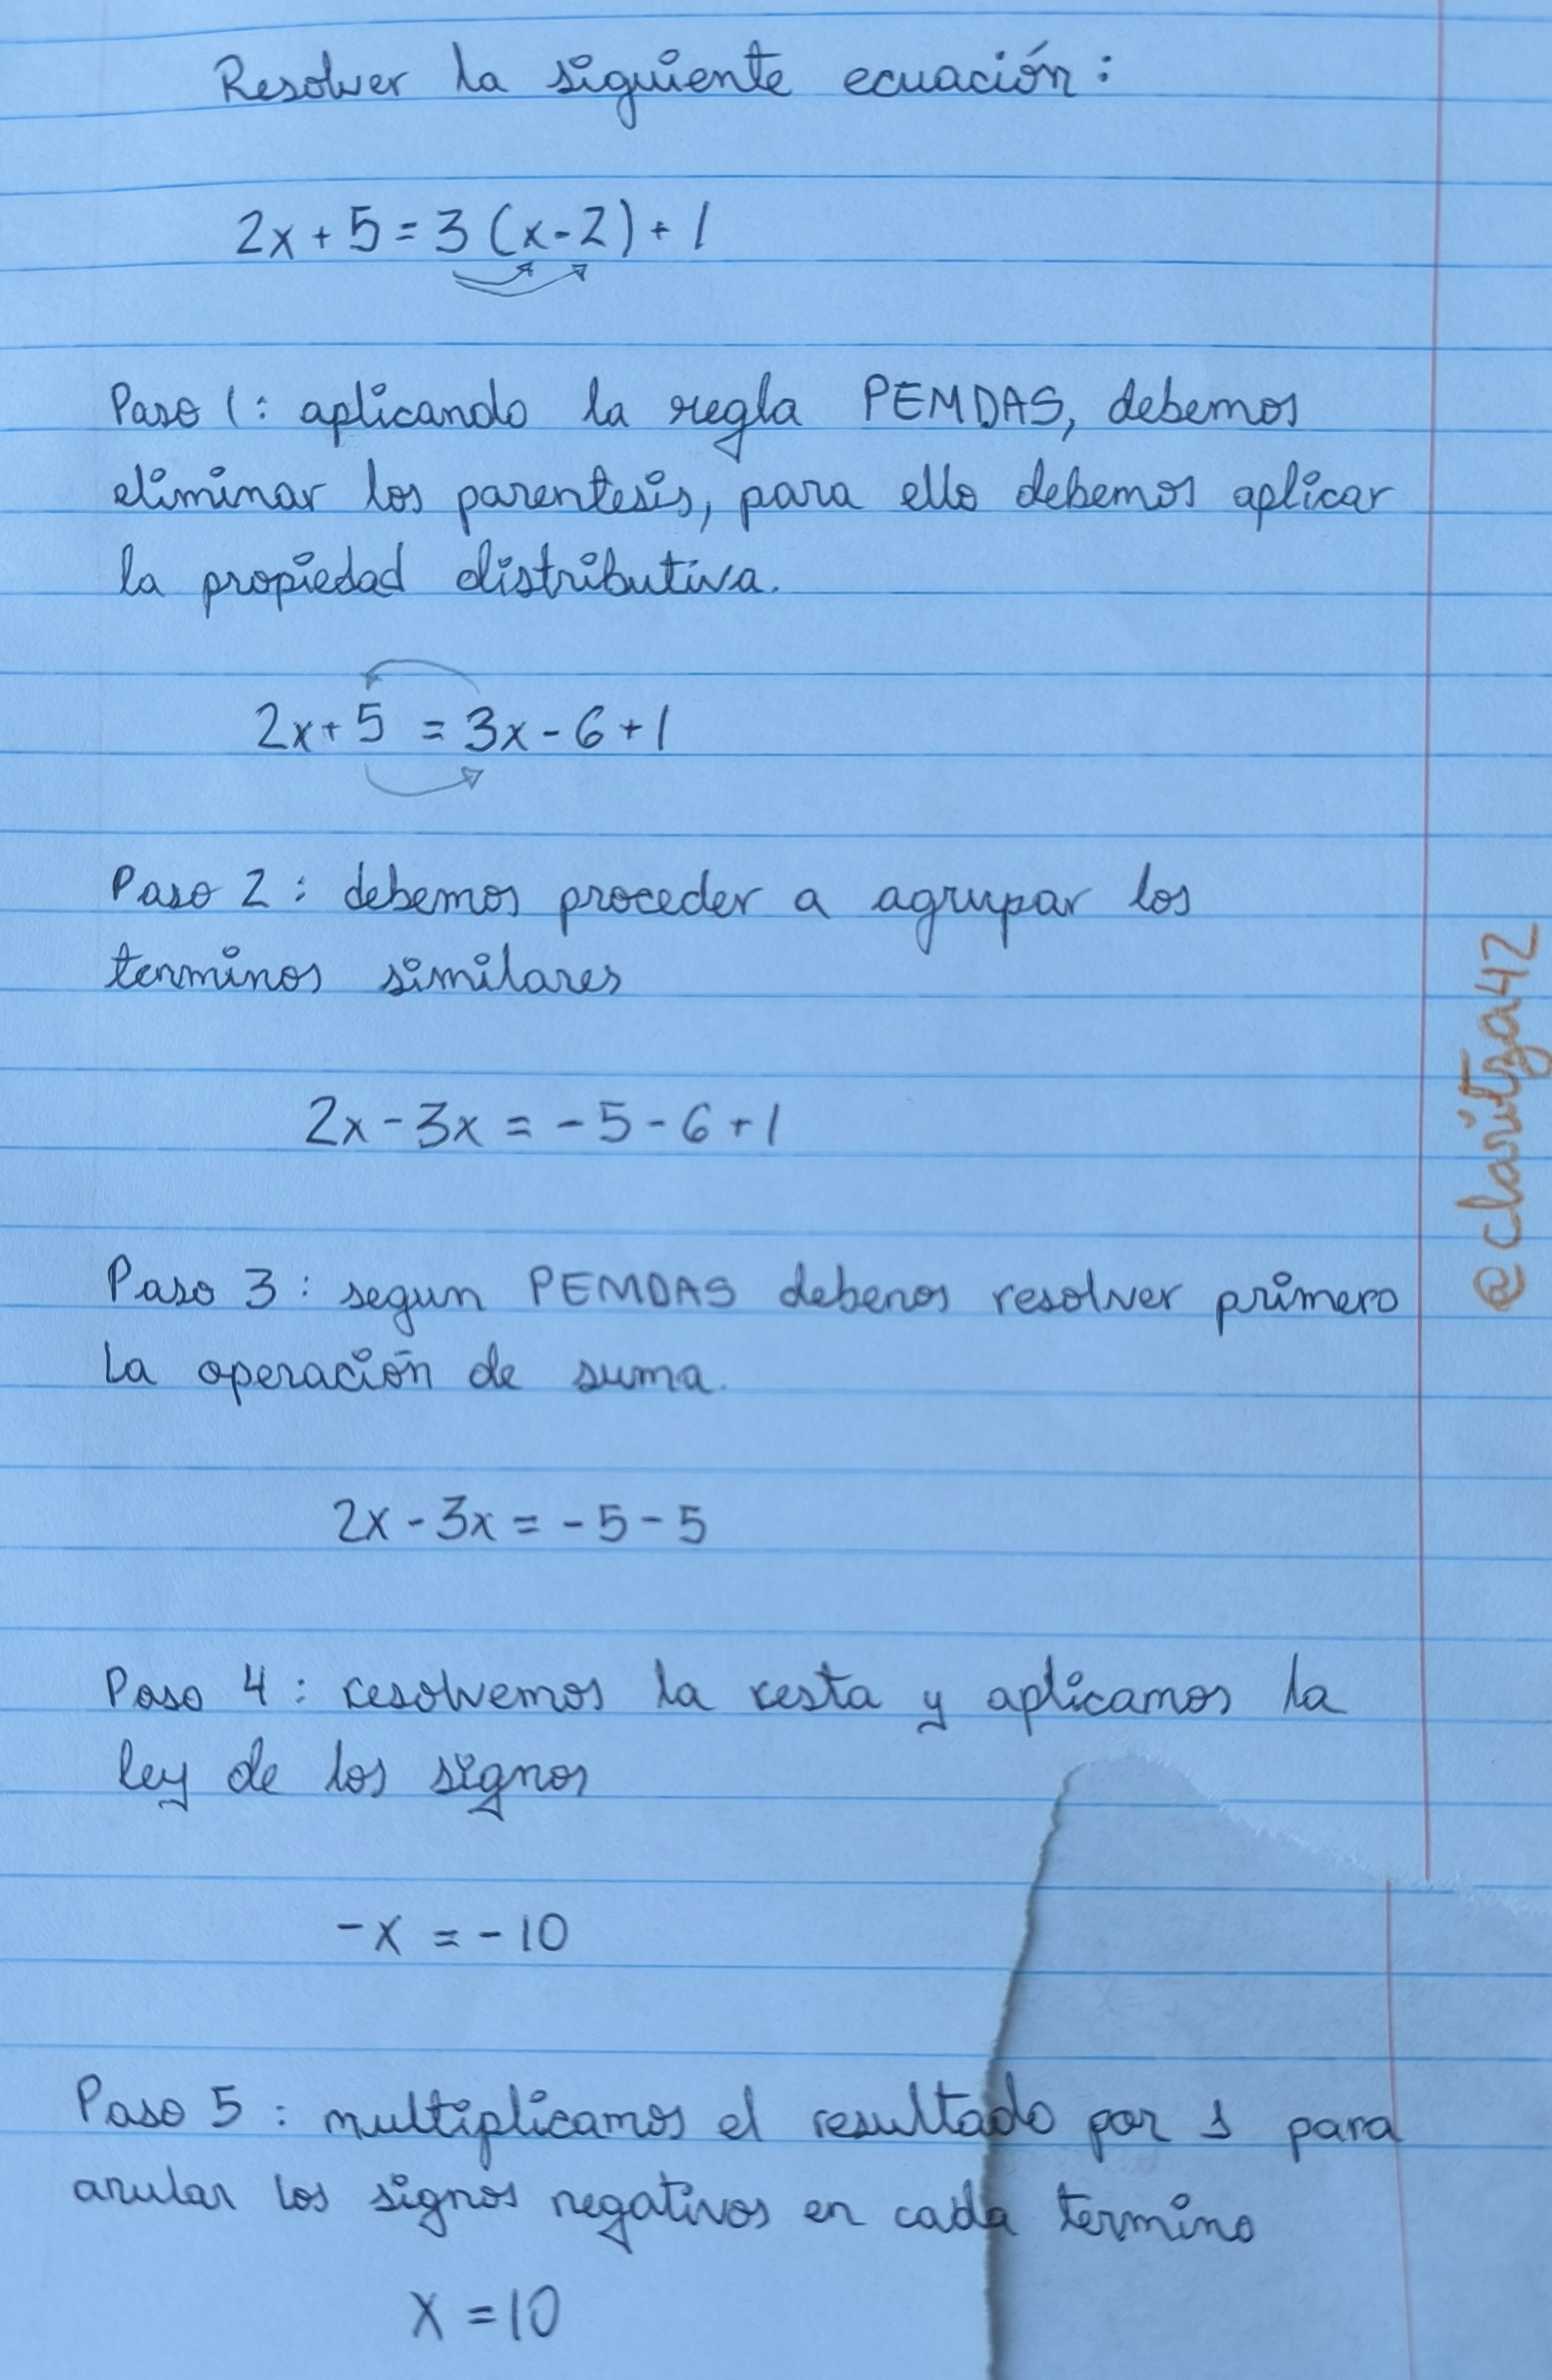 Resolver la siguiente ecuación:
2x + 5 = 3 (x - 2) + 1
Paso 1: aplicando la regla PEMDAS, debemos
eliminar los parentesis, para ello debemos aplicar
la propiedad distributiva.
2x + 5 = 3x - 6 + 1
Paso 2: debemos proceder a agrupar los
terminos similares
2x - 3x = - 5 - 6 + 1
Paso 3: segun PEMDAS debenos resolver primero
la operación de suma.
2x - 3x = - 5 - 5
Paso 4: resolvemos la resta y aplicamos la
ley de los signos
-x = - 10
Paso 5: multiplicamos el resultado por 1 para
anular los signos negativos en cada termino
x = 10
@claritza42